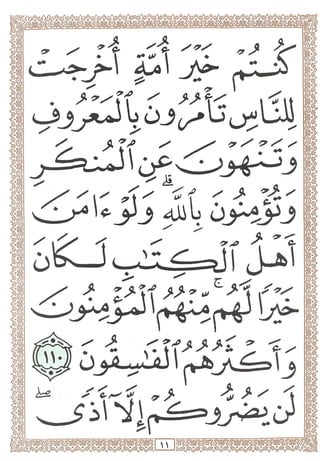 كُنتُمْ خَيْرَ أُمَّةٍ أُخْرِجَتْ
لِلنَّاسِ تَأْمُرُونَ بِالْمَعْرُوفِ
وَتَنْهَوْنَ عَنِ الْمُنكَرِ
وَتُؤْمِنُونَ بِاللَّهِ ۗ وَلَوْ ءَامَنَ
أَهْلُ الْكِتَٰبِ لَكَانَ
خَيْرًا لَّهُم ۚ مِّنْهُمُ الْمُؤْمِنُونَ
وَأَكْثَرُهُمُ الْفَٰسِقُونَ ١١٠
لَن يَضُرُّوكُمْ إِلَّآ أَذًى ۖ
١١